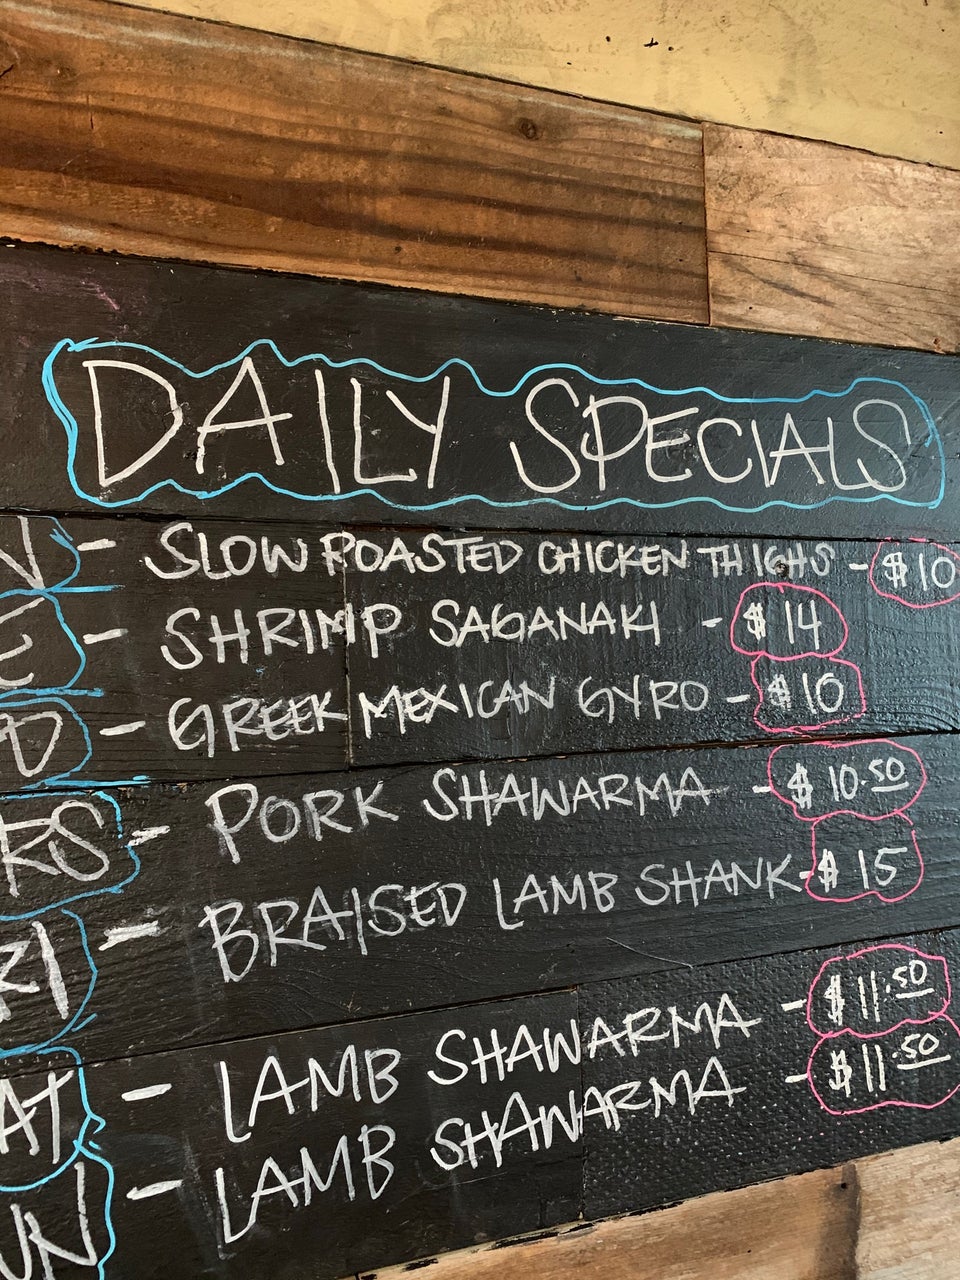 DAILY SPECIALS
N - SLOW ROASTED CHICKEN THIGHS - $10
E - SHRIMP SAGANAKI - $14
D - GREEK MEXICAN GYRO - $10
RS - PORK SHAWARMA - $10.50
RI - BRAISED LAMB SHANK - $15
AT - LAMB SHAWARMA - $11.50
UN - LAMB SHAWARMA - $11.50